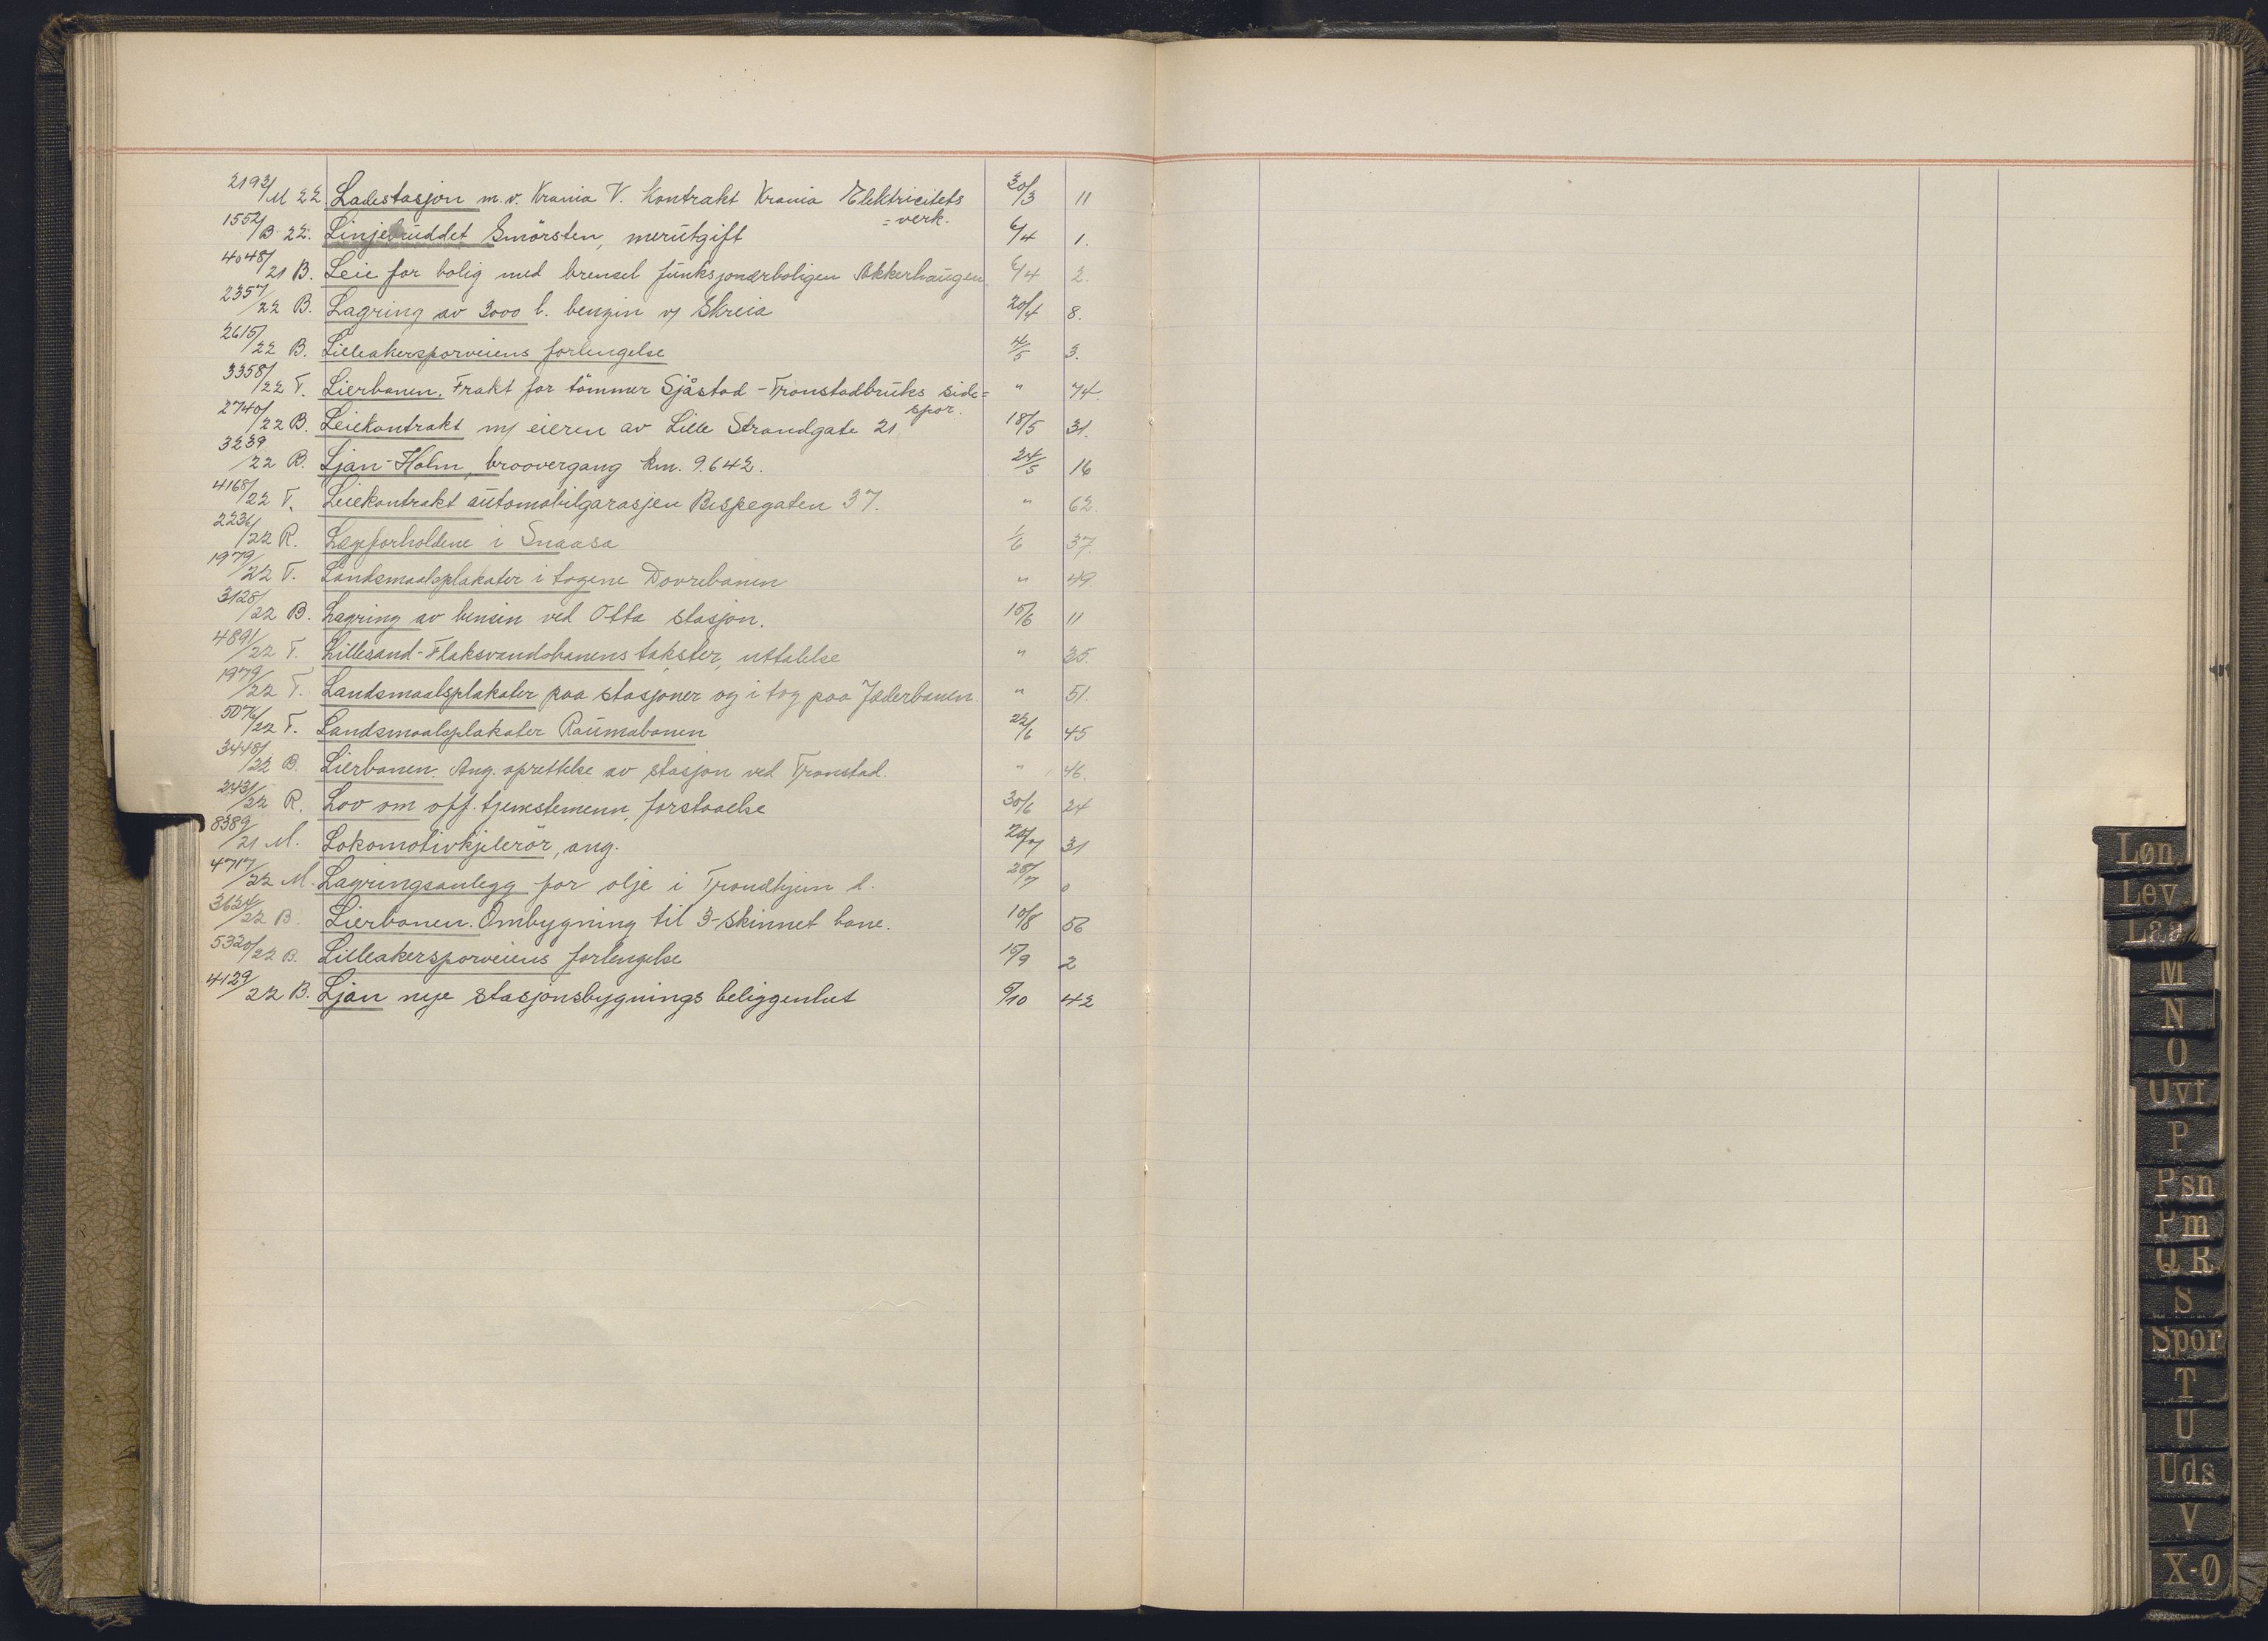 2193/M 22. Ladestasjon m.v. Krania V. Kontrakt Krania Elektricitets 30/3 11
= verk.
1552/B 22. Linjebruddet Smörsten, merutgift 6/4 1.
4048/21 B. Leie for bolig med brensel funksjonærboligen Akkerhaugen 6/4 2.
2357/22 B. Lagring av 3000 l. benzin v/ Skreia 20/4 8.
2615/22 B. Lilleakersporveiens forlengelse 4/5 3.
3358/22 T. Lierbanen. Frakt for tömmer Sjåstad - Tronstadbruks side= " 74.
spor.
2740/22 B. Leiekontrakt m/ eieren av Lille Strandgate 21 18/5 31.
3239/22 B. Ljan-Holm, broovergang km. 9.642. 24/5 16
4168/22 T. Leiekontrakt automobilgarasjen Bispegaten 37. " 62.
2236/22 R. Lægeforholdene i Snaasa 1/6 37.
1979/22 T. Landsmaalsplakater i togene Dovrebanen " 49.
3128/22 B. Lagring av bensin ved Otta stasjon. 15/6 11
4891/22 T. Lillesand-Flaksvandsbanens takster, uttalelse " 35.
1979/22 T. Landsmaalsplakater paa stasjoner og i tog paa Jæderbanen. " 51.
5076/22 T. Landsmaalsplakater Raumabanen 22/6 45
3448/22 B. Lierbanen. Ang. oprettelse av stasjon ved Tronstad. " 46.
2431/22 R. Lov om off. tjenestemenn, forstaaelse 30/6 24
8389/21 M. Lokomotivkjelerör, ang. 20/7 31
4717/22 M. Lagringsanlegg for olje i Trondhjem d. 28/7 0
3624/22 B. Lierbanen. Ombygning til 3-skinnet bane. 10/8 56
5320/22 B. Lilleakersporveiens forlengelse 15/9 2
4129/22 B. Ljan nye stasjonsbygnings beliggenhet 5/10 42
Løn
Lev
Laa
M
N
O
Ovf
P
Psn
Pm
Q R
S
Spor
T
U
Uds
V
X-Ø